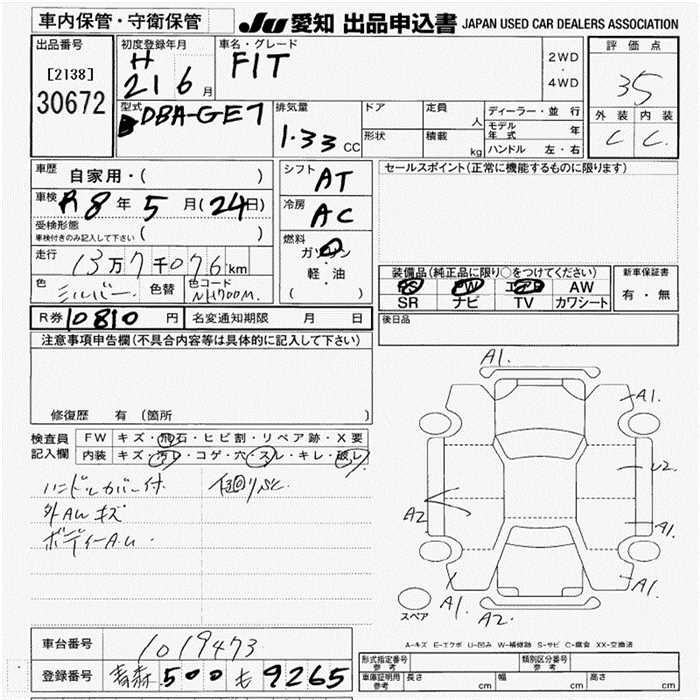 車内保管・守衛保管
JU 愛知 出品申込書 JAPAN USED CAR DEALERS ASSOCIATION
出品番号
[2138]
30672
初度登録年月
H
21 6 月
車名・グレード
FIT
2WD
・
4WD
評価点
35
外装 内装
C C
型式
DBA-GE7
排気量
1.33 CC
ドア
定員
人
形状
積載
kg
ディーラー・並行
モデル年式 年
ハンドル 左・右
車歴
自家用・( )
車検
R8年5月(24日)
受検形態
車検付きのみ記入して下さい ( )
走行
13万7千076km
色 シルバー 色替 色コード NH700M.
シフト AT
冷房 AC
燃料
ガソリン
軽・油
( )
セールスポイント(正常に機能するものに限ります)
装備品(純正品に限り○をつけてください)
PS PW エアB AW
SR ナビ TV カワシート
新車保証書
有・無
R券 10810 円 名変通知期限 月 日
後日品
注意事項申告欄(不具合内容等は具体的に記入して下さい)
修復歴 有 (箇所 )
検査員
記入欄
FW キズ・飛石・ヒビ割・リペア跡・X要
内装 キズ・汚レ・コゲ・穴・スレ・キレ・破レ
ハンドルカバー付
外AW キズ
ボディーA.U.
A1.
A1.
U2.
A2
A1.
A1.
A1.
A2.
スペア
A-キズ E-エクボ U-凹み W-補修跡 S-サビ C-腐食 XX-交換済
車台番号 1019473
登録番号 青森 500 も 9265
形式指定番号
参考
類別区分番号
参考
車庫証明用
参考
長さ cm
幅 cm
高さ cm